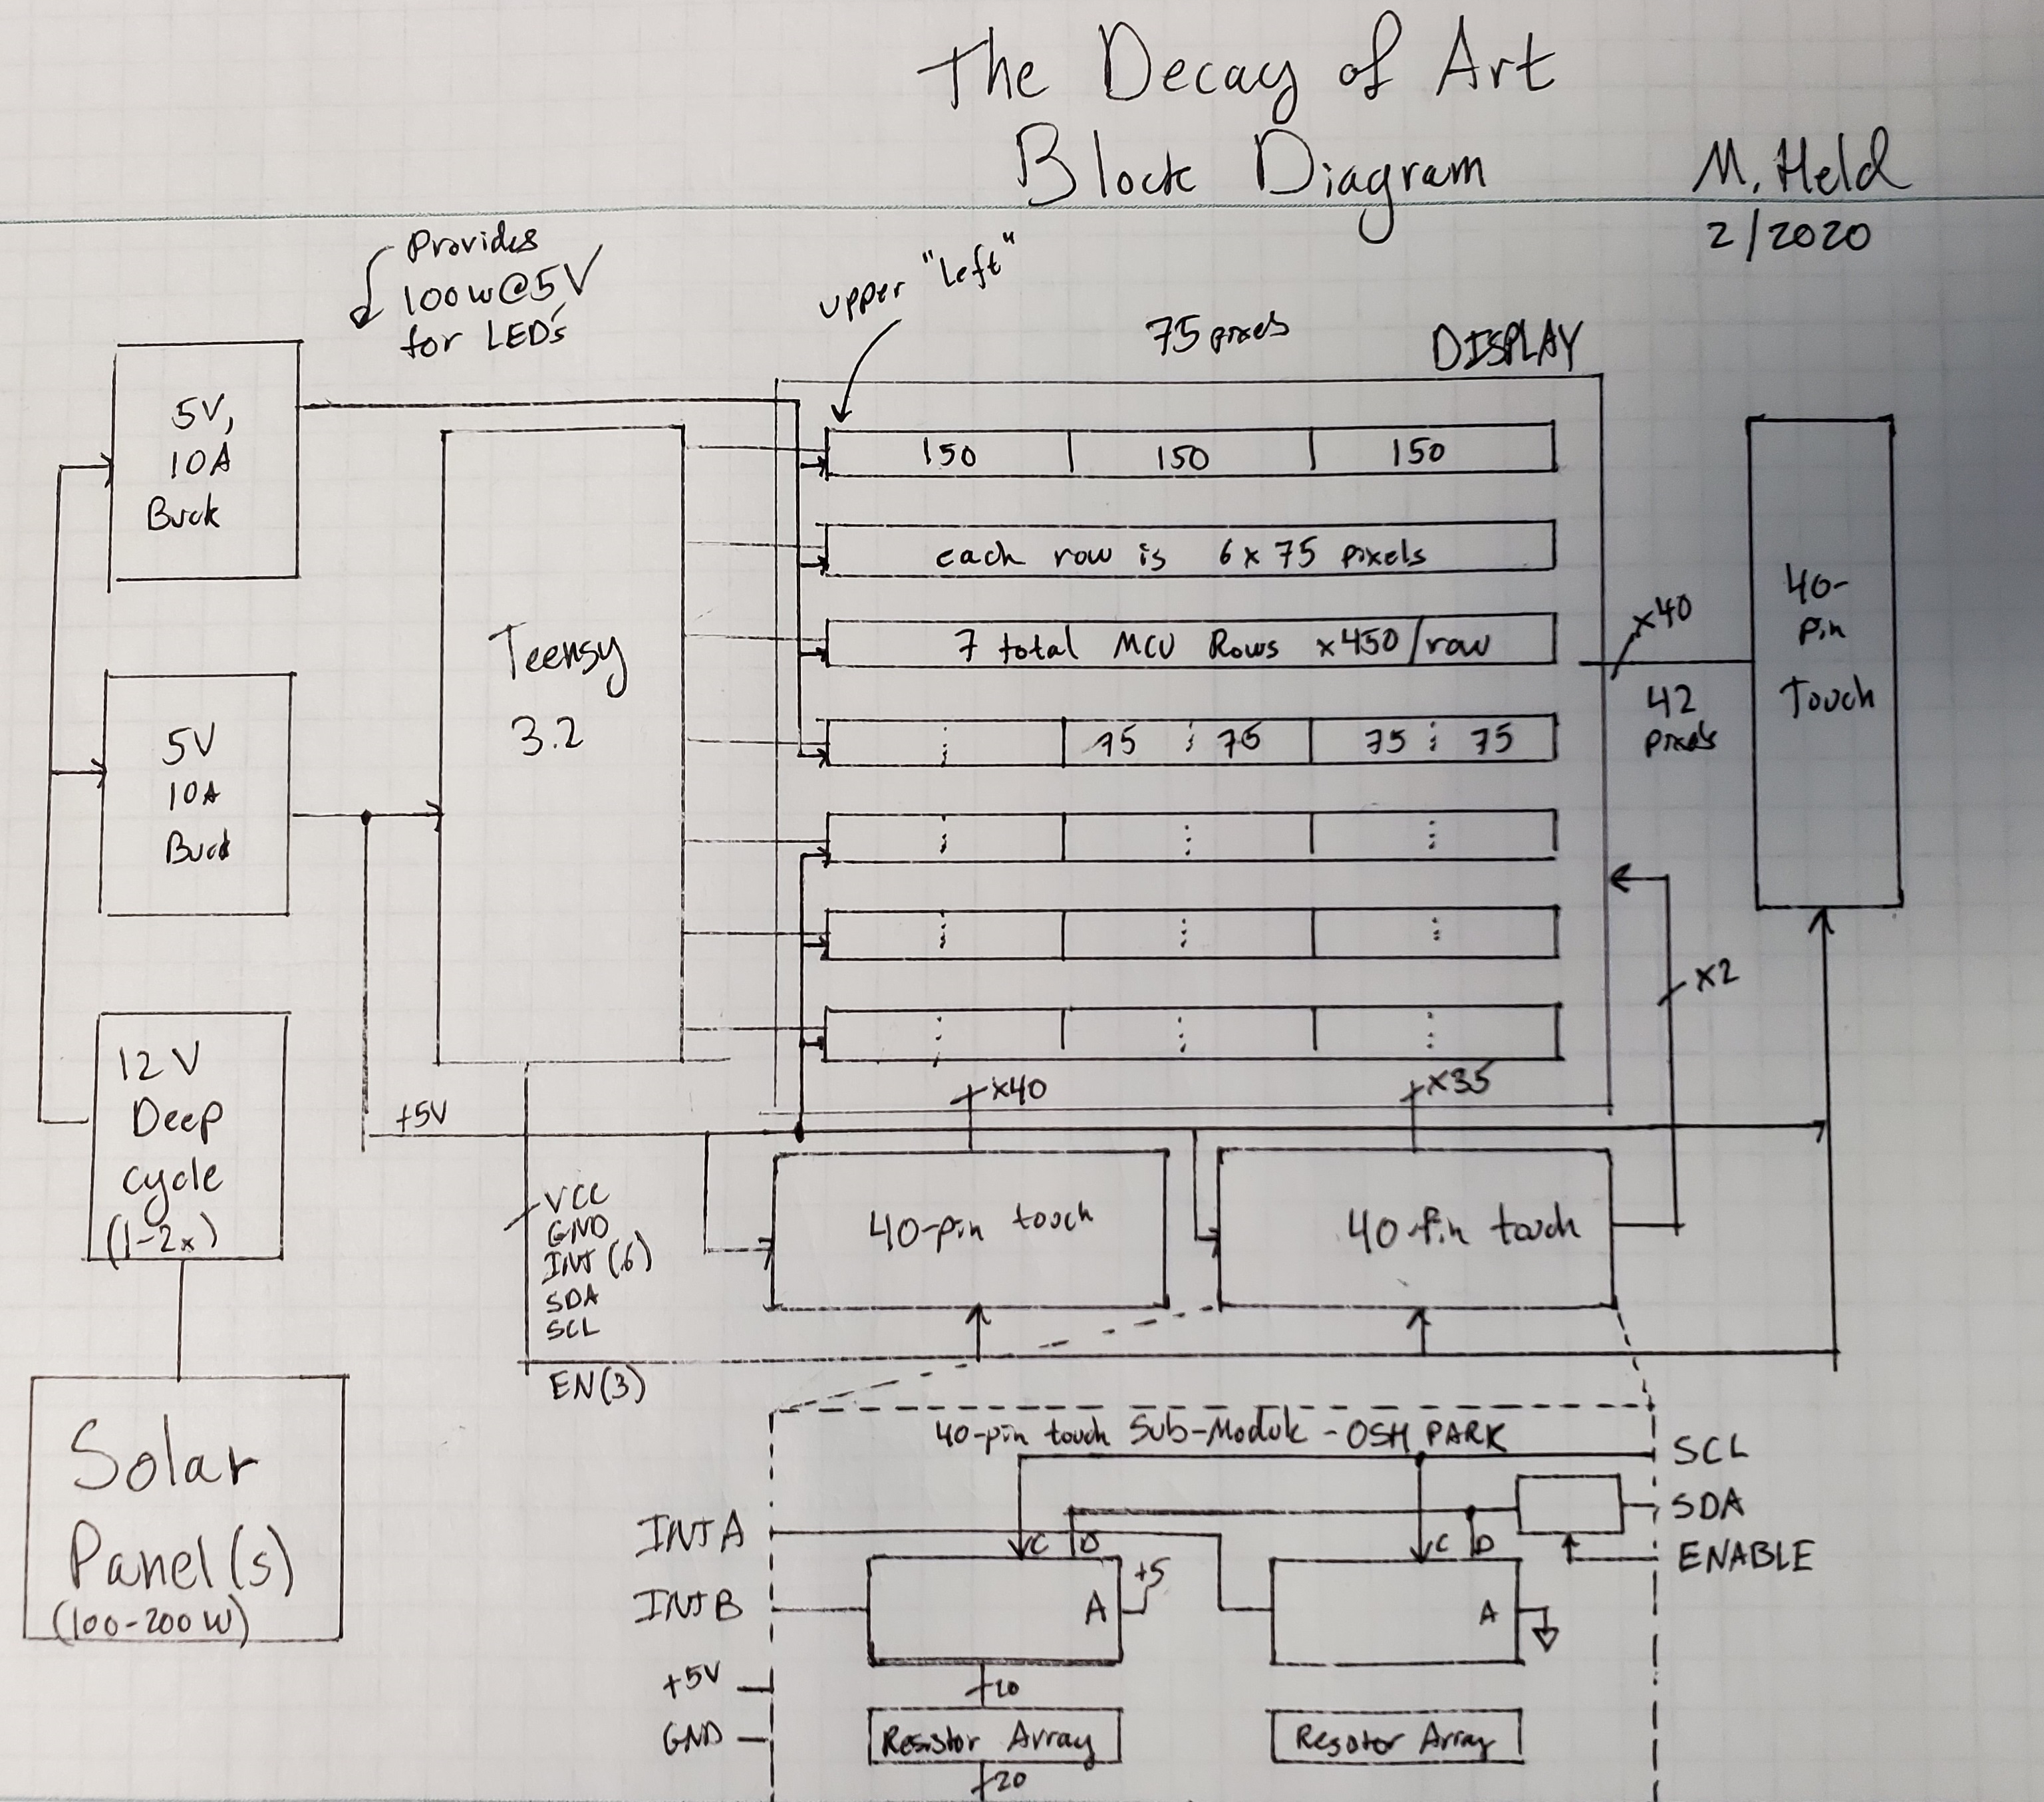 The Decay of Art
Block Diagram
M. Held
2/2020
Provides
100W@5V
for LED's
upper "Left"
75 pixels
DISPLAY
5V,
10A
Buck
5V
10A
Buck
12V
Deep
Cycle
(1-2x)
Solar
Panel(s)
(100-200W)
Teensy
3.2
150 150 150
each row is 6x75 pixels
7 total MCU Rows x450/row
75 75 75 75
x40
42
pixels
40-
pin
Touch
x2
x40
x35
+5V
VCC
GND
INT(6)
SDA
SCL
EN(3)
40-pin touch
40-pin touch
40-pin touch Sub-Module - OSH PARK
SCL
SDA
ENABLE
INTA
INTB
+5V
GND
C D
A
+5
C D
A
20
Resistor Array
20
Resistor Array